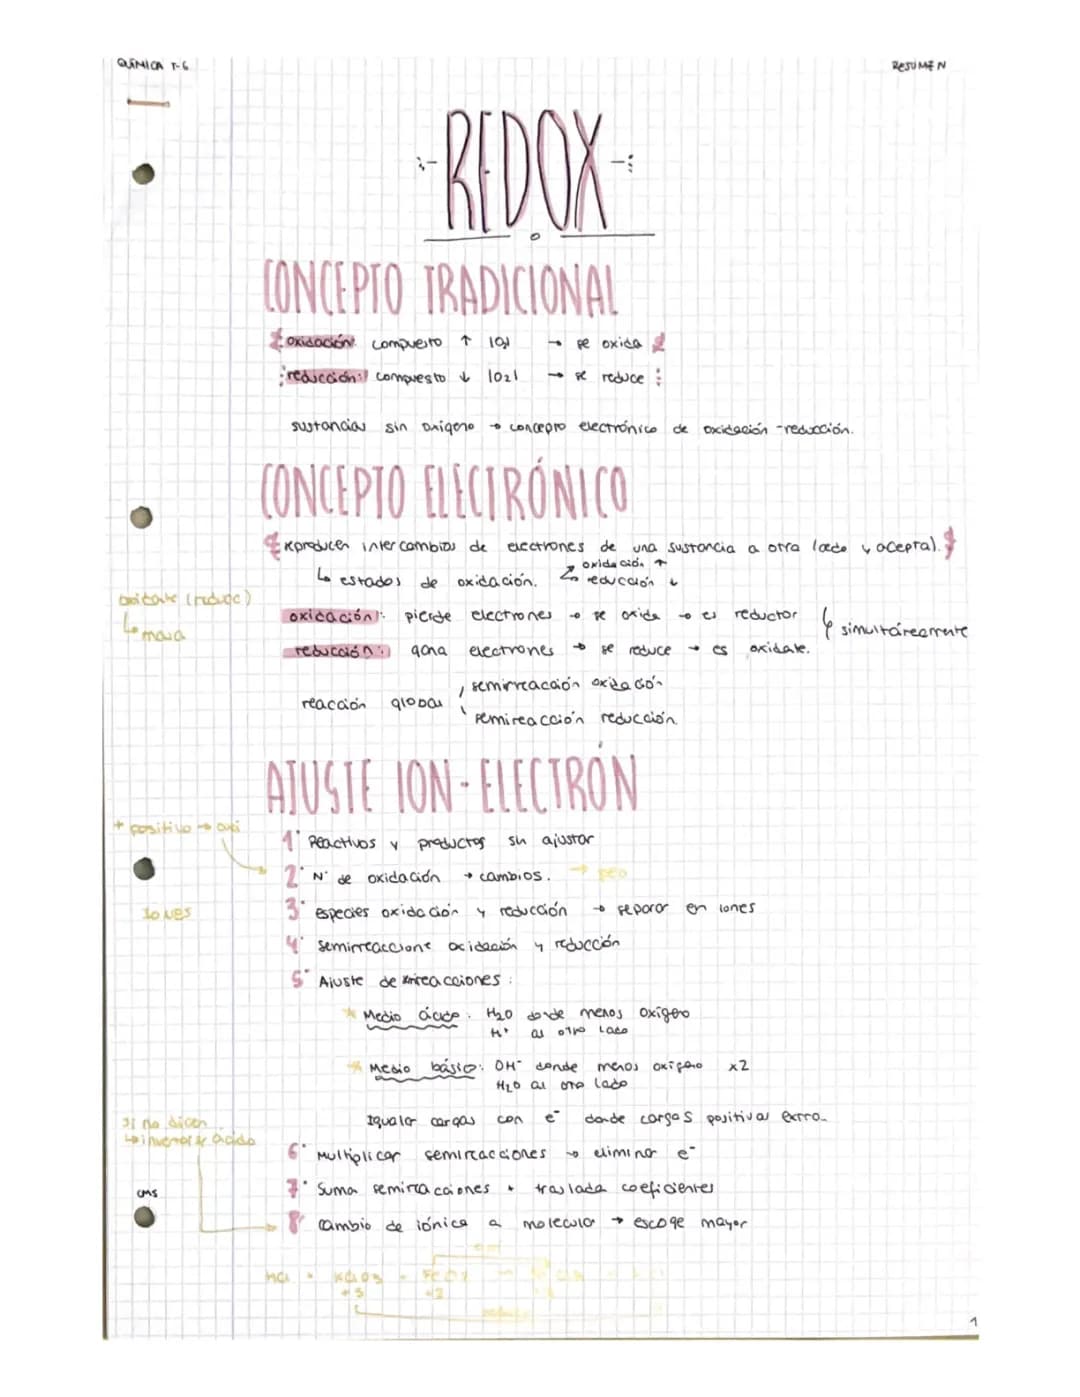 QUÍMICA T-6
RESUMEN
REDOX
CONCEPTO TRADICIONAL
oxidación: compuesto ↑ |O2| → se oxida
reducción: compuesto ↓ |O2| → se reduce
sustancias sin oxígeno → concepto electrónico de oxidación-reducción.
CONCEPTO ELECTRÓNICO
se producen intercambios de electrones de una sustancia a otra (cede y acepta).
↳ estados de oxidación. oxidación ↑
reducción ↓
oxidante (reduce)
↳ masa
oxidación: pierde electrones → se oxida → es reductor
simultáneamente
reducción: gana electrones → se reduce → es oxidate.
reacción global
semirreacción oxidación
semireacción reducción
AJUSTE ION-ELECTRÓN
+ positivo → oxi
1º Reactivos y productos sin ajustar
2º Nº de oxidación → cambios.
iones
3º especies oxidación y reducción → separar en iones
4º semirreaccione oxidación y reducción
5º Ajuste de reacciones:
Medio ácido: H2O donde menos oxígeno
H+ al otro lado
Medio básico: OH- donde menos oxígeno x2
H2O al otro lado
Igualar cargas con e- donde cargas positivas extra
si no dicen
ácido
6º Multiplicar semireacciones → eliminar e-
7º Suma semireacciones + traslada coeficientes
8º cambio de iónica a molecular → escoge mayor
CMS
HCl + KClO3 +
+5 +2
1